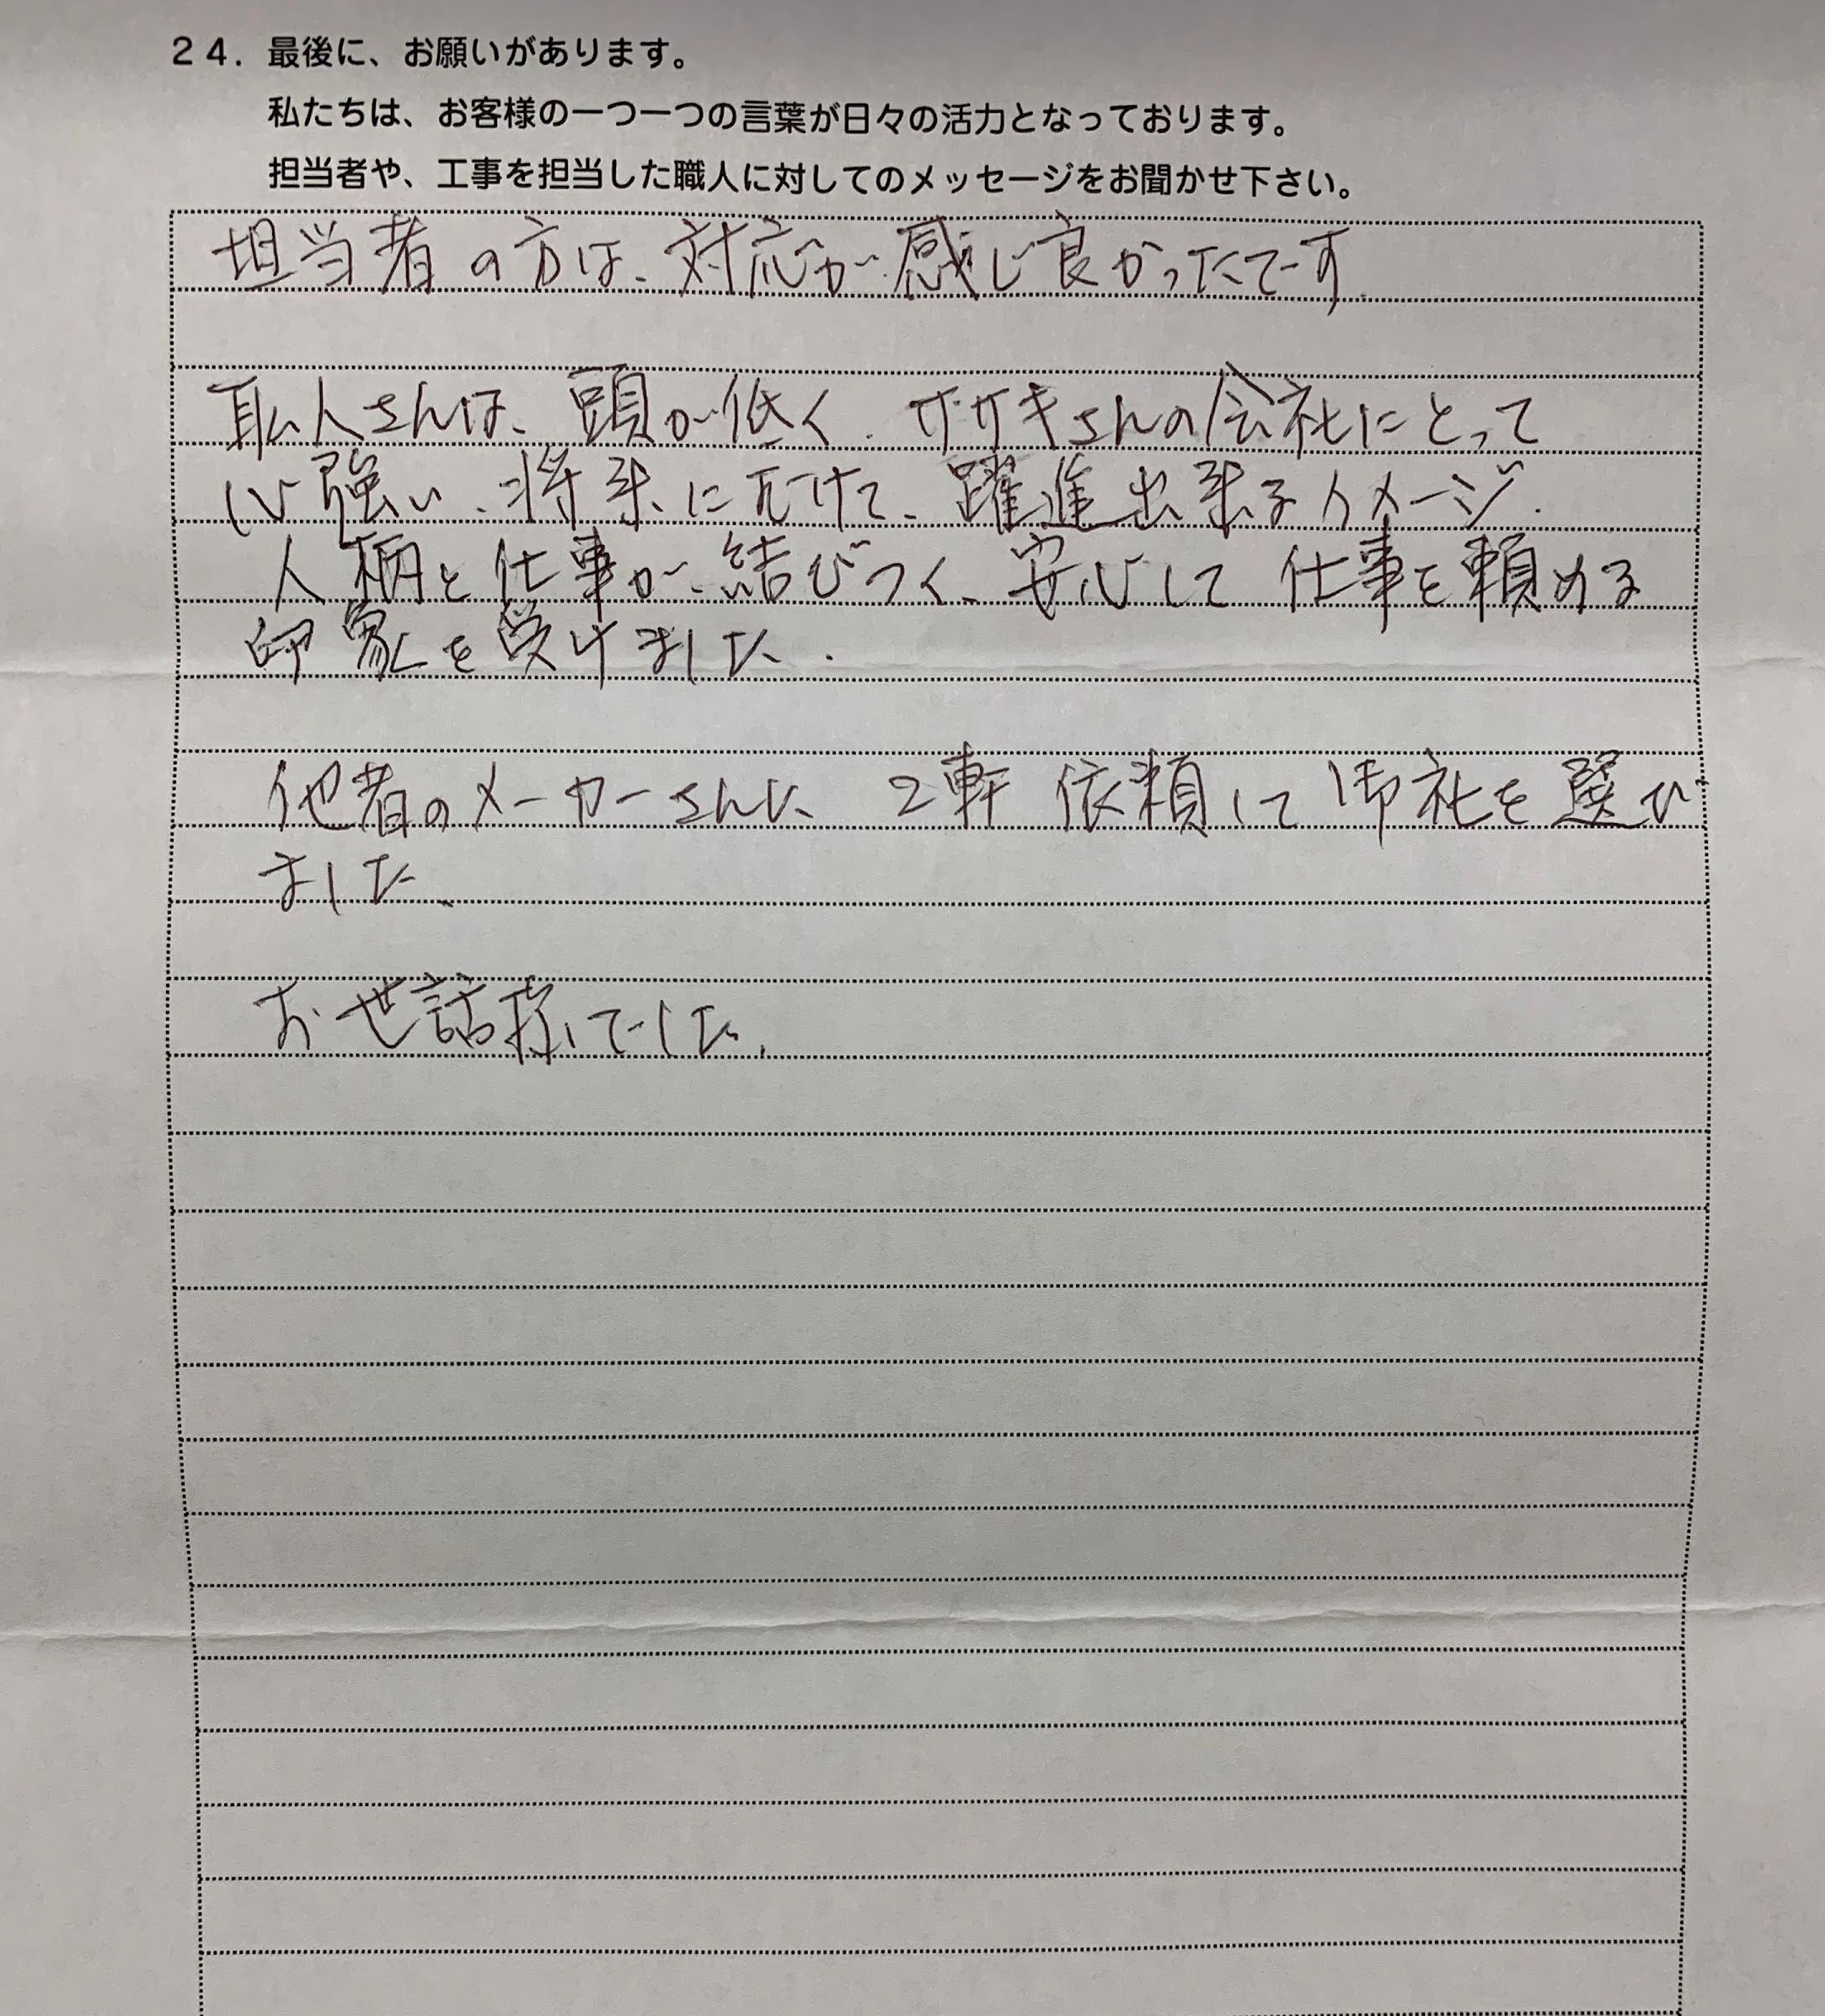 24. 最後に、お願いがあります。
私たちは、お客様の一つ一つの言葉が日々の活力となっております。
担当者や、工事を担当した職人に対してのメッセージをお聞かせ下さい。
担当者の方は、対応が感じ良かったです
耺人さんは、頭が低く、ササキさんの会社にとって
心強い、将来に向けて、躍進出来るイメージ.
人柄と仕事が結びつく、安心して仕事を頼める
印象を受けました.
他者のメーカーさんに 2軒 依頼して御社を選び
ました、
お世話様でした.